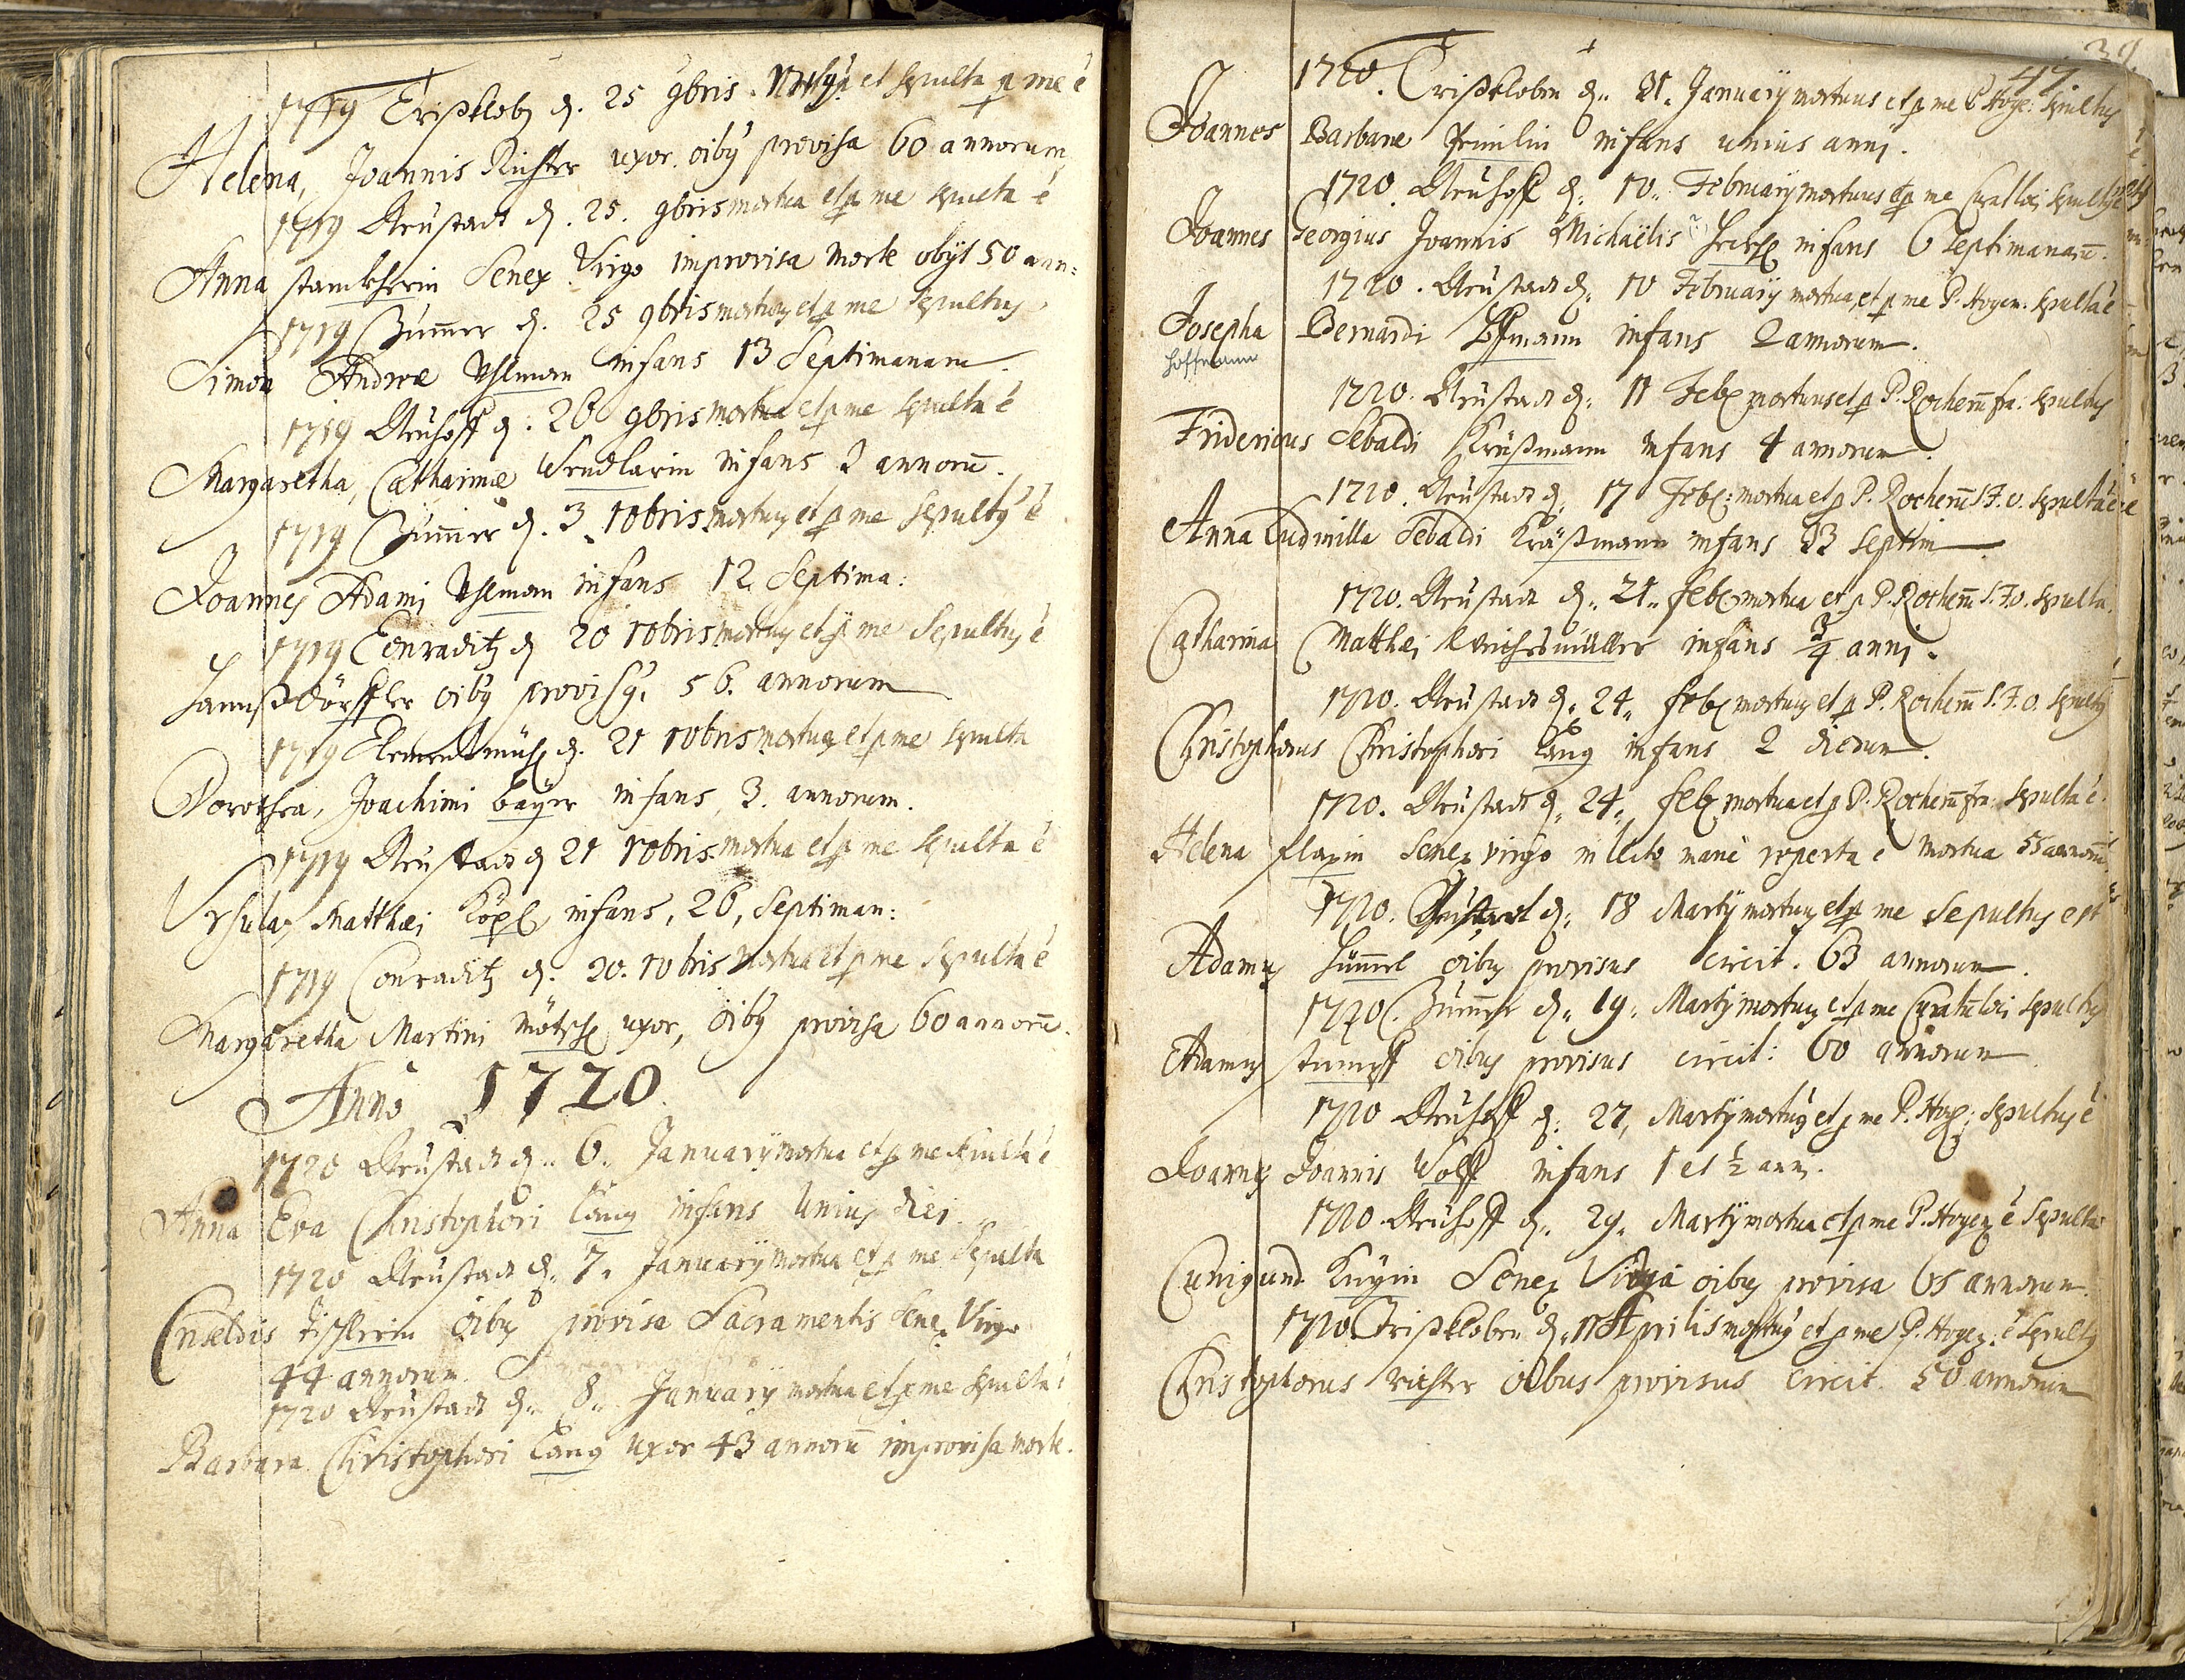 1719 Trißklob d. 25 9bris. et sepulta p me è
Helena, Joannis Richter uxor oiby provisa 60 annorum
1719 Neustadt d. 25. 9bris mortua et p me sepulta è
Anna stamkherin Senex Virgo improvisa morte obyt 50 ann:
1719 Zummer d. 25 9bris mortuy et p me sepultuy
Simon Andreæ Uhlman infans 13 Septimanarum.
1719 Neuhoff d: 26 9bris mortua et p me sepulta è
Margaretha, Catharinæ Wendlarin infans 2 annorū.
1719 Zummer d. 3 10bris mortuy et p me Sepulty è
Joannes Adami Uhlman infans 12 Septima:
1719 Conraditz d 20 10bris mortuy et p me Sepultuy è
Hannß Dörffler oiby provisy. 56. annorum
1719 d. 21 10bris mortua et p me sepulta
Dorothea, Joachimi bayer infans, 3. annorum.
1719 Neustadt d 21 10bris mortua et p me sepulta è
Ursula, Matthæi Köpl infans, 26, Septiman:
1719 Conraditz d. 20. 10bris mortua et p me Sepulta è
Margaretha Martini uxor, oiby provisa 60 annorū.
Anno 1720.
1720 Neustadt d. 6. January mortua et p me sepulta è
Anna Eva Christophori Lang infans Uniuy diei.
1720 Neustadt d. 7. January mortua et p me Sepulta
tischlerin oiby provisa Sacramentis Senex Virgo
44 annorum.
1720 Neustadt d. 8. January mortua et p me Sepulta è
Barbara Christophori Lang uxor 43 annorū improvisa morte.
39
47
1720. Trißkloben d. 21. January mortuus et p me P. Hoge: sepultuy
Joannes Barbaræ infans unius anni.
1720. Neuhoff d. 10. February mortuus et p me sepultuy è
Joannes Georgius Joannis Michaëlis infans 6 septimanarū.
1720. Neustadt d. 10 February mortua, et p me P. Hogen. sepulta è
Josepha Bernardi Hoffmann infans 2 annorum.
Hoffmann
1720. Neustadt d. 11 Feb mortuus et p P. Rochem̄ sepultuy
Fridericus Sebaldi Kräßmann infans 4 annorum.
1720. Neustadt d. 17 Feb: mortua et p P. Rochem̄ S.F.o. sepulta è
Anna Ludmilla Sebaldi Kräßmann infans 13 septim
1720. Neustadt d. 21. feb mortua et p P. Rochem̄ S.F.o. sepulta.
Catharina Matthæi infans 3/4 anni.
1720. Neustadt d. 24. feb mortuy et p P. Rochem̄ S.F.o. sepulty
Christophorus Christophori Lang infans 2 dierum.
1720. Neustadt d. 24. feb mortua et p P. Rochem̄ sepulta è.
Helena flaxin Senex virgo in lecto manè reperta è mortua 55 annorū.
1720. Neustadt d. 18 Marty mortuy et p me sepultuy est
Adamuy hümmel oibuy provisus circit. 63 annorum.
1720. Zummer d. 19. Marty mortuy et p me sepultuy
Adamuy stumpff oibuy provisus circit: 60 annorum
1720 Neuhoff d: 27, Marty mortuy et p me P. Hog: sepultuy è
Joannes Joannis Wolff infans 1 et 1/2 ann.
1720. Neuhoff d. 29. Marty mortua et p me P. Hogen è sepulta
Cunigund Senex Virgo oibuy provisa 65 annorum.
1720. Trißkloben d. 11 Aprilis mortuy et p me P. Hogen: è sepulty
Christophorus richter oibus provisus circit. 50 annorum